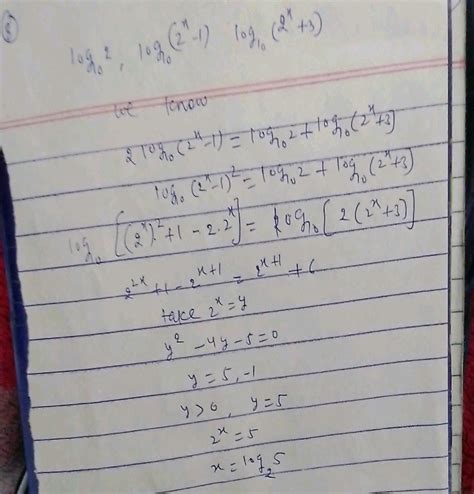 8
log₁₀2, log₁₀(2ˣ-1) log₁₀(2ˣ+3)
we know
2log₁₀(2ˣ-1) = log₁₀2 + log₁₀(2ˣ+3)
log₁₀(2ˣ-1)² = log₁₀2 + log₁₀(2ˣ+3)
log₁₀[(2ˣ)²+1-2·2ˣ] = log₁₀[2(2ˣ+3)]
2²ˣ+1-2ˣ⁺¹ = 2ˣ⁺¹+6
take 2ˣ=y
y²-4y-5=0
y=5,-1
y>0, y=5
2ˣ=5
x=log₂5